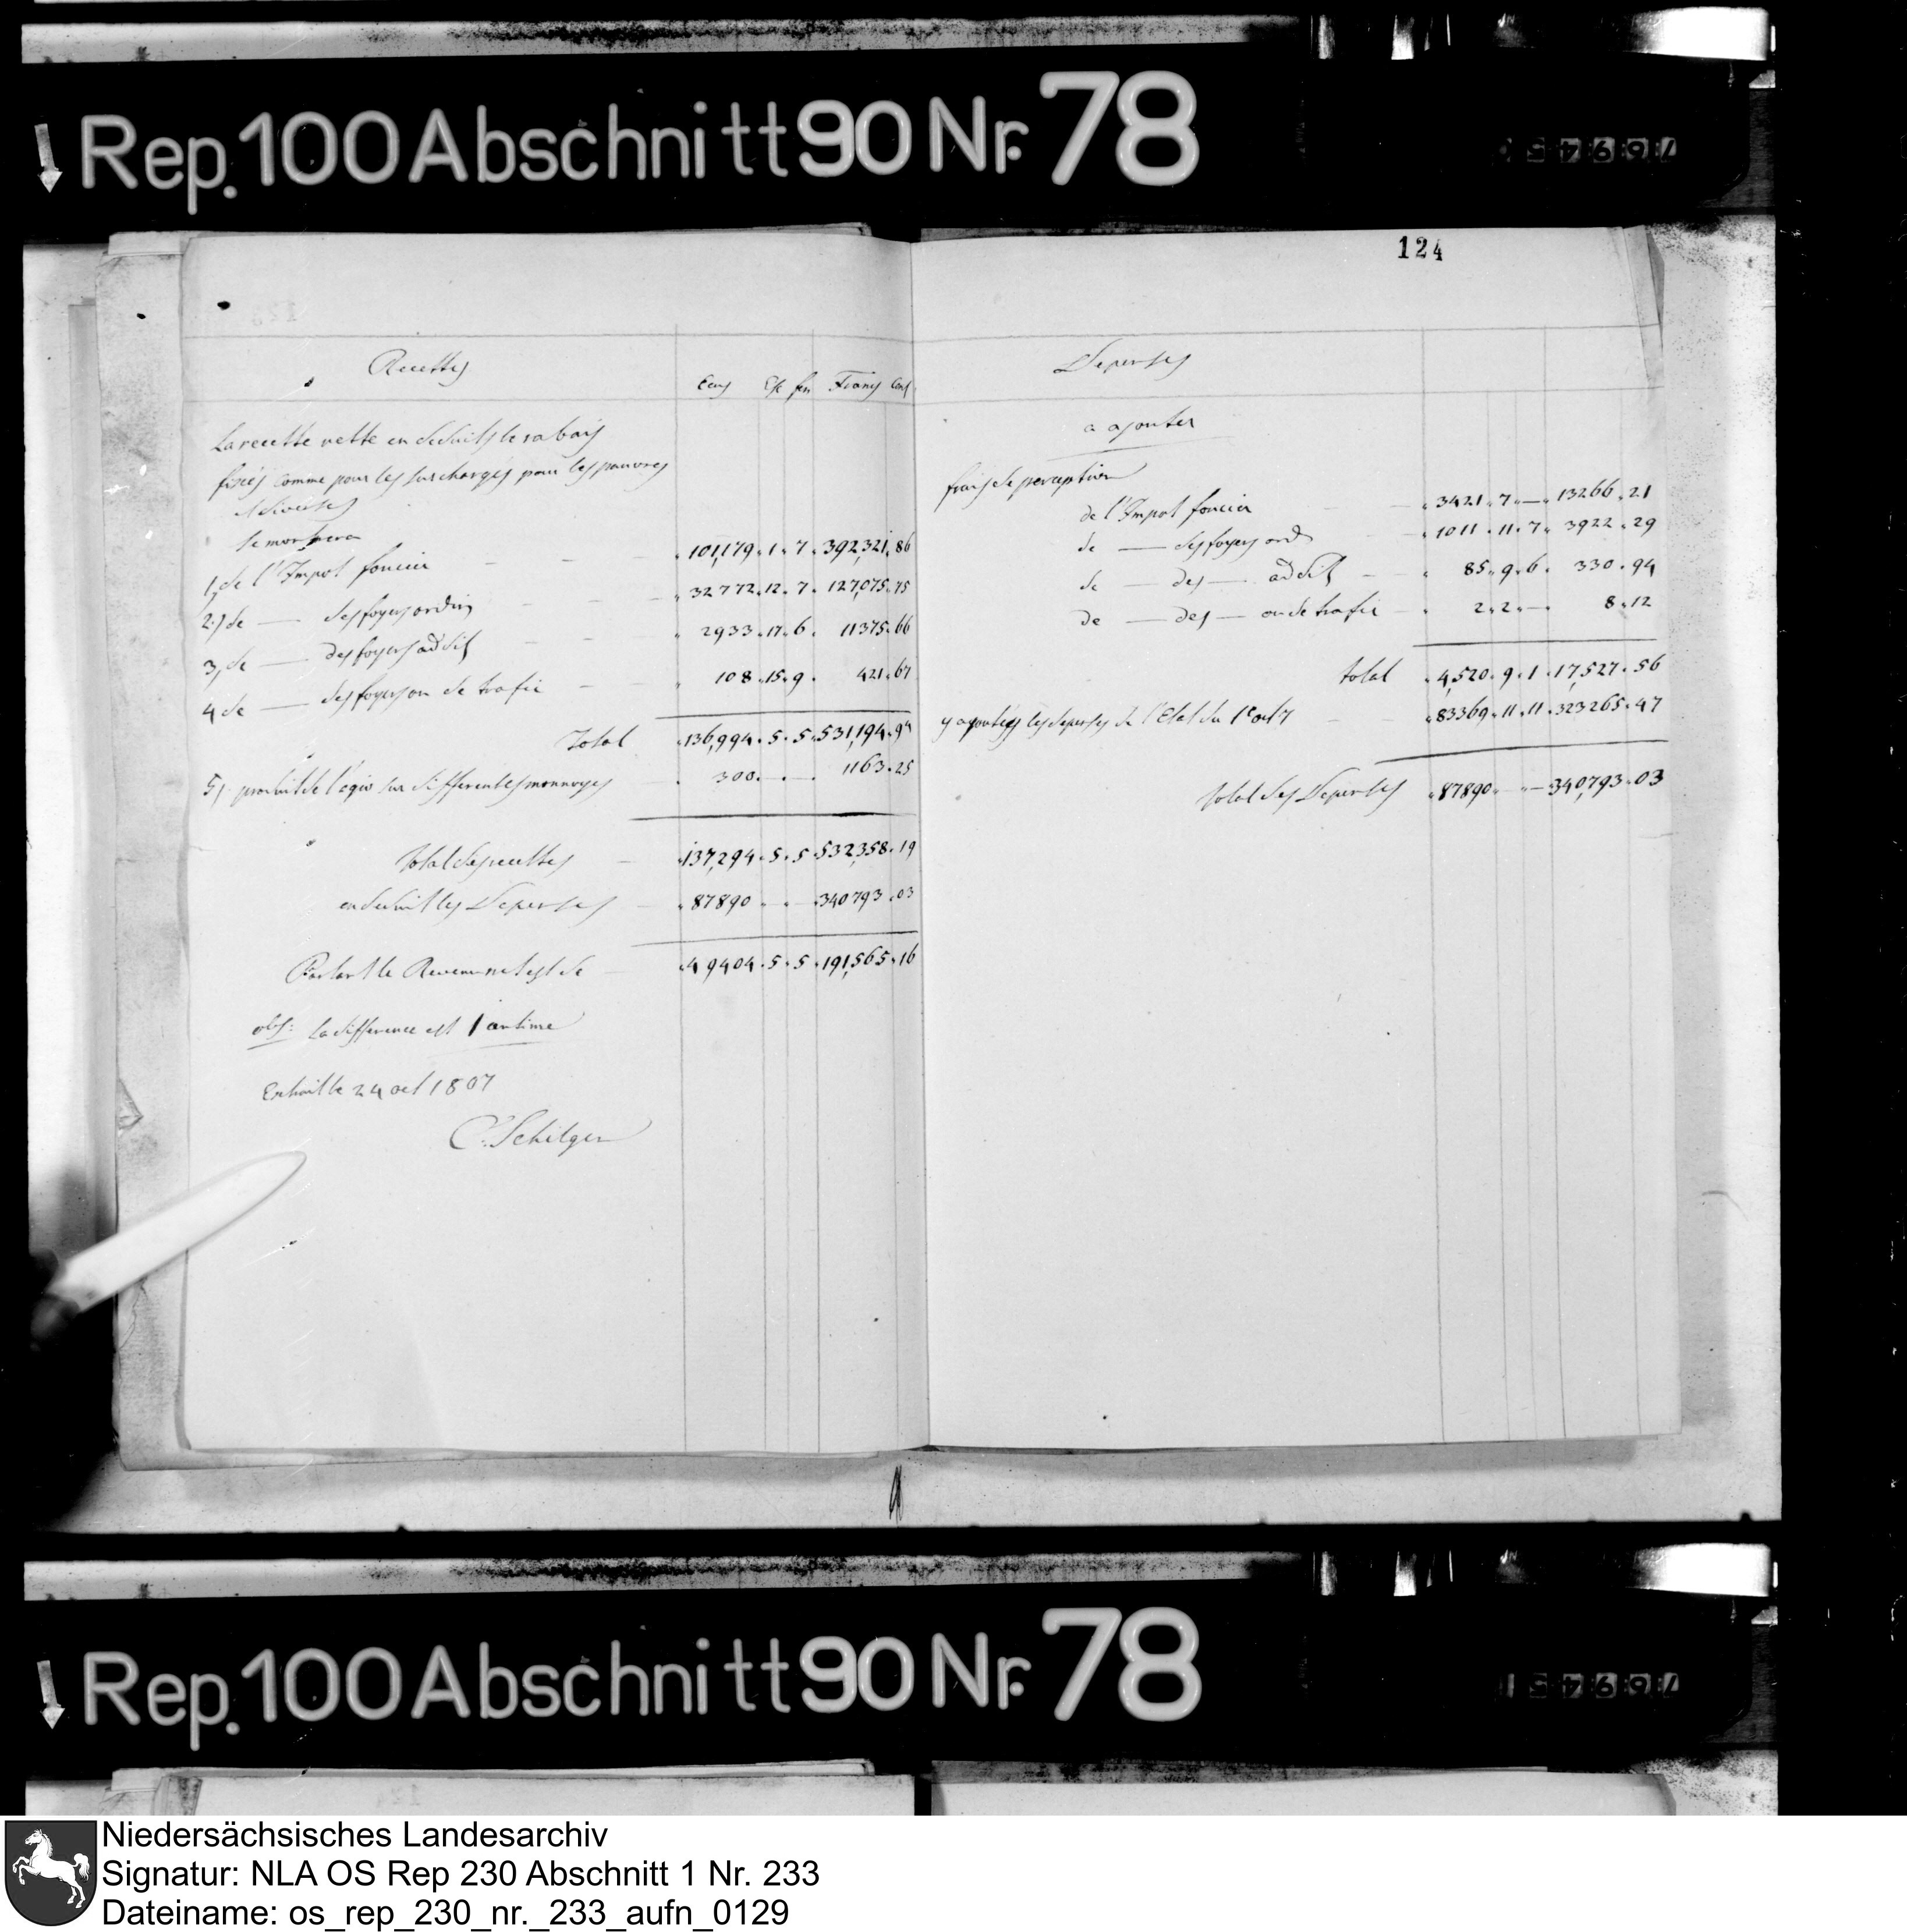 Rep. 100 Abschnitt 90 Nr. 78
124
Recettes
Ecus Esc fen Francs Cens
La recette nette en deduits le rabais
fixés comme pour les surcharges pour les pauvres
et diverses
se montera
1, de l'Impot foncier 101,179 . 1 . 7 . 392,321 . 86
2,) de — des foyers ordin 32772 . 12 . 7 . 127,075 . 75
3, de — des foyers addit 2933 . 17 . 6 . 11375 . 66
4 de — des foyers ou de trafic 108 . 15 . 9 . 421 . 67
Total 136,994 . 5 . 5 . 531,194 . 94
5, produit de l'agio sur differentes monnoyes 300 . — . — . 1163 . 25
total des recettes 137,294 . 5 . 5 . 532,358 . 19
en deduit les Depenses 87890 . . 340793 . 03
Partant le Revenu net est de 49404 . 5 . 5 . 191,565 . 16
obs: la difference est 1 centime
Extrait le 24 oct 1807
C. Schilgen
Depenses
a ajouter
frais de perception
de l'Impot foncier 3421 . 7 . — . 13266 . 21
de — des foyers ord 1011 . 11 . 7 . 3922 . 29
de — des — addit 85 . 9 . 6 . 330 . 94
de — des — ou de trafic 2 . 2 . — . 8 . 12
total 4,520 . 9 . 1 . 17,527 . 56
y ajoutées les depenses de l'Etat du 1er oct 7 83369 . 11 . 11 . 323265 . 47
total des Depenses 87890 . . — 340,793 . 03
Rep. 100 Abschnitt 90 Nr. 78
Niedersächsisches Landesarchiv
Signatur: NLA OS Rep 230 Abschnitt 1 Nr. 233
Dateiname: os_rep_230_nr._233_aufn_0129